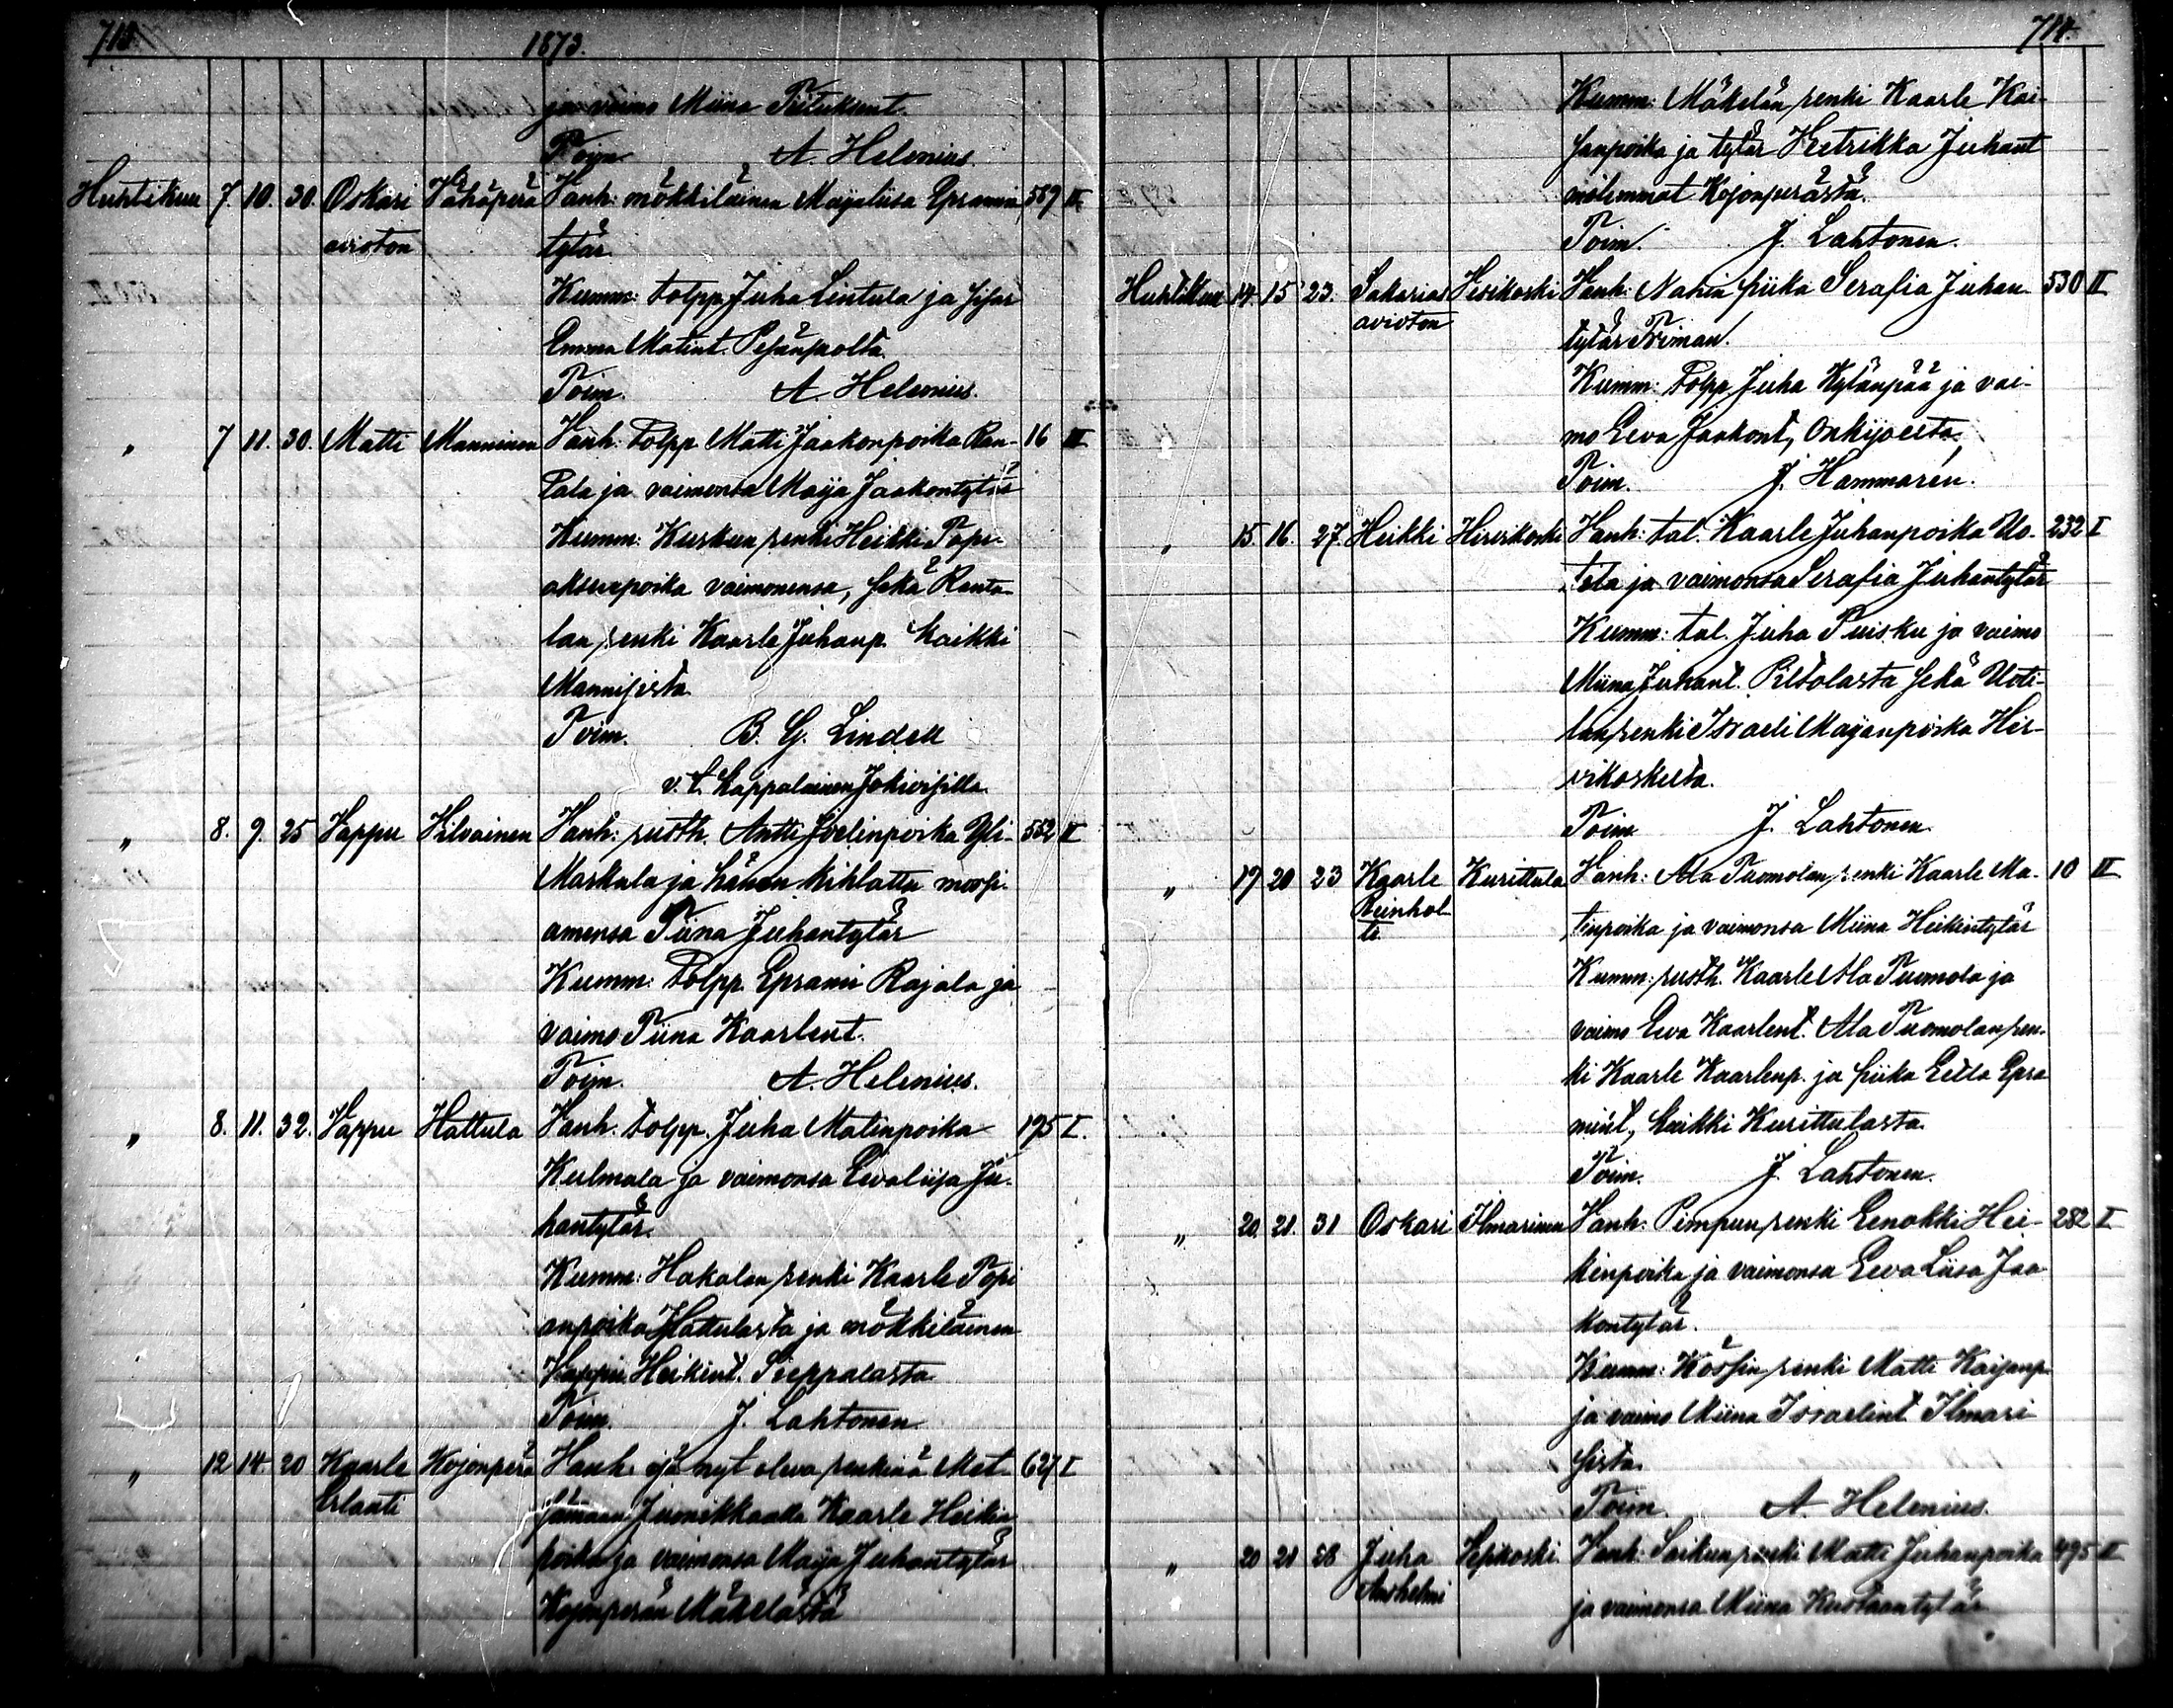 713.
1873.
ja vaimo Miina Tiitukent.
Toim. A. Helenius
Huhtikuu 7. 10. 30. Oskari Vähäperä Vanh: mökkiläinen Maijaliisa Epramin 589 II
avioton tytär.
Kumm: Tolpp. Juha Lintula ja sisar
Emma Matint. Pesänsuolta.
Toim. A. Helenius.
„ 7 11. 30. Matti Manninen Vanh: Tolpp Matti Jaakonpoika Ran- 16 III
tala ja vaimonsa Maija Jaakontytär
Kumm: Kuskun renki Heikki Topi-
aksenpoika vaimonensa, sekä Ranta-
lan renki Kaarle Juhanp. kaikki
Mannisista.
Toim. B. G. Lindell
v. t. kappalainen Jokioisilla.
„ 8. 9. 25 Vappu Vilvainen Vanh: rusth. Antti Joelinpoika Yli- 552 II
Markula ja hänen kihlattu morsi-
amensa Tiina Juhantytär
Kumm: Tolpp. Eprami Rajala ja
vaimo Tiina Kaarlent.
Toim. A. Helenius.
„ 8. 11. 32. Vappu Hattula Vanh. Tolpp. Juha Matinpoika 195 I.
Kulmala ja vaimonsa Eevaliisa Ju-
hantytär.
Kumm: Hakalan renki Kaarle Topi
anpoika Hattulasta ja mökkiläinen
Vappu Heikint. Sieppalasta
Toim. J. Lahtonen
„ 12 14 20 Kaarle Kojonperä Vanh. nyt oleva renkinä Met- 627 I
Erlanti Juonikkaalla Kaarle Heikin
poika ja vaimonsa Maija Juhantytär
Kojonperän Mäkelästä
714.
Kumm: Mäkelän renki Kaarle Kai-
sanpoika ja tytär Hetrikka Juhant
molemmat Kojonperästä.
Toim. J. Lahtonen.
Huhtikuu 14. 15 23. Sakarias Hirsikoski Vanh: Nahin piika Serafia Juhan- 530 II
avioton tytär Friman.
Kumm: Tolpp. Juha Kylänpää ja vai-
mo Eeva Jaakont, Onkijoelta.
Toim. J. Hammarén.
„ 15. 16. 27. Heikki Hirvikoski Vanh: tal. Kaarle Juhanpoika Uo- 232 I
tila ja vaimonsa Serafia Juhantytär
Kumm: tal. Juha Puisku ja vaimo
Miina Juhant. Piltolasta sekä Uoti-
lan renki Israeli Maijanpoika Hir-
vikoskelta.
Toim J. Lahtonen
„ 19 20 23 Kaarle Kurittula Vanh: Ala Tuomolan renki Kaarle Ma- 10 II
Reinhol-
ti tinpoika ja vaimonsa Miina Heikintytär
Kumm: rusth. Kaarle Ala Tuomola ja
vaimo Eeva Kaarlent. Ala Tuomolan ren-
ki Kaarle Kaarlenp. ja piika Eella Epra
mint, kaikki Kurittulasta.
Toim. J. Lahtonen.
„ 20. 21. 31 Oskari Ilmarinen Vanh: Pimpun renki Eenokki Hei- 282 I
kinpoika ja vaimonsa Eeva Liisa Jaa
kontytär.
Kumm: Kössin renki Matti Kaijanp.
ja vaimo Miina Israelint Ilmari
sista.
Toim A. Helenius.
„ 20 21 28 Juha Vepikoski Vanh: Saikun renki Matti Juhanpoika 495 II
Anshelmi ja vaimonsa Miina Kustaantytär